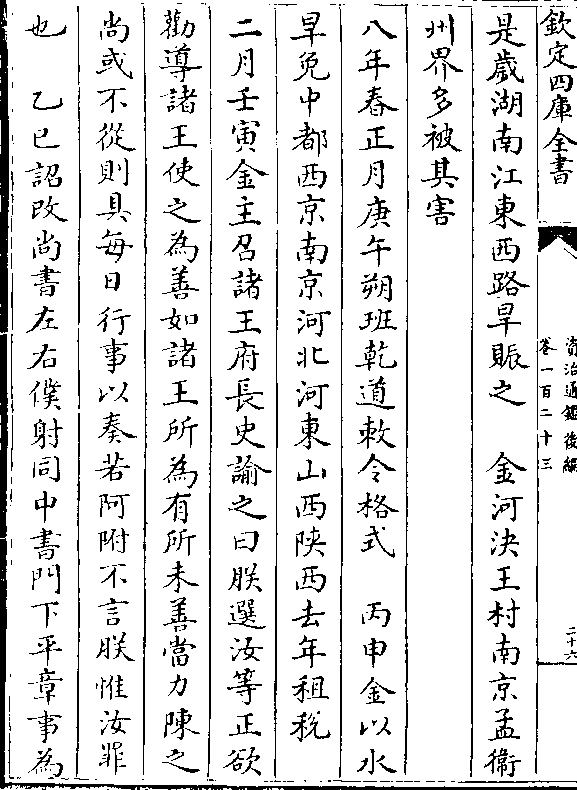 欽定四庫全書
資治通鑑後編
卷一百二十三
二十六
是歲湖南江東西路旱賑之　金河決王村南京孟衛
州界多被其害
八年春正月庚午朔班乾道敕令格式　丙申金以水
旱免中都西京南京河北河東山西陜西去年租稅
二月壬寅金主召諸王府長史諭之曰朕選汝等正欲
勸導諸王使之為善如諸王所為有所未善當力陳之
尚或不從則具每日行事以奏若阿附不言朕惟汝罪
也　乙巳詔改尚書左右僕射同中書門下平章事為